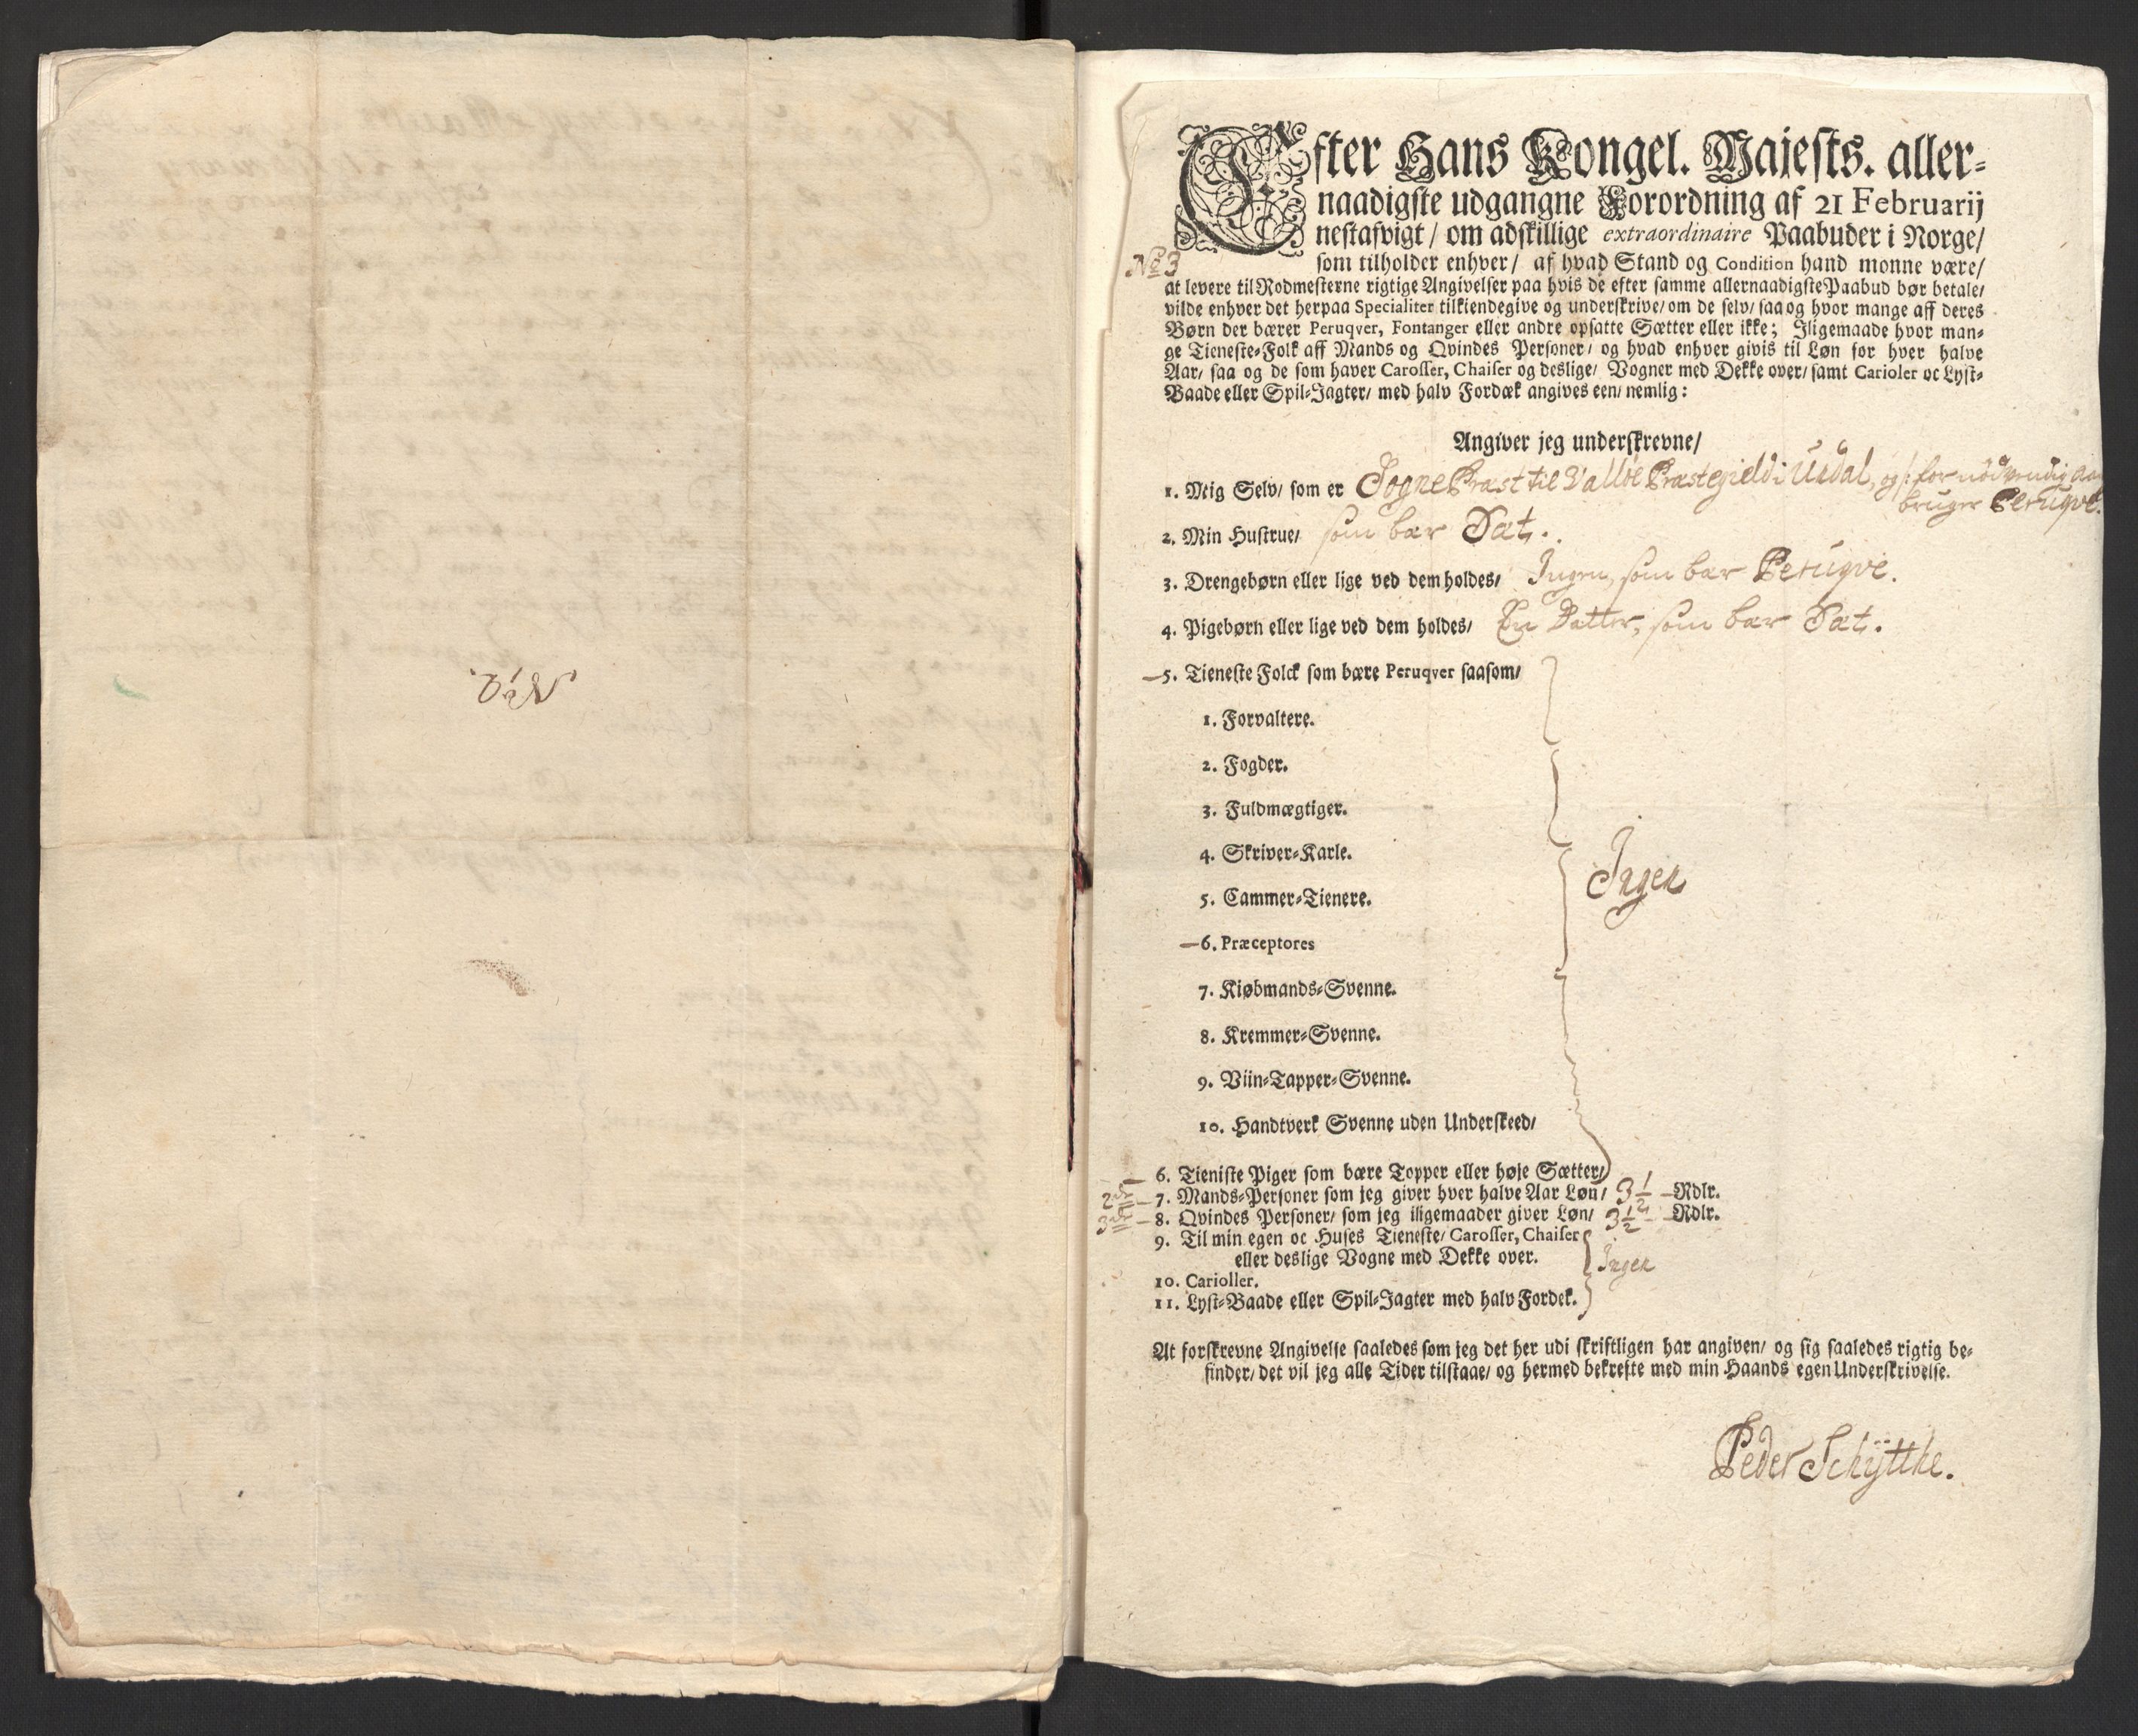 No 2
No 3
Efter Hans Kongel. Majests. aller-
naadigste udgangne Forordning af 21 Februarij
nestafvigt / om adskillige extraordinaire Paabuder i Norge/
som tilholder enhver/ af hvad Stand og Condition hand monne være/
at levere til Rodmesterne rigtige Angivelser paa hvis de efter samme allernaadigste Paabud bør betale/
vilde enhver det herpaa Specialiter tilkiendegive og underskrive/ om de selv/ saa og hvor mange aff deres
Børn der bærer Peruqver, Fontanger eller andre opsatte Sætter eller ikke; Iligemaade hvor man-
ge Tieneste-Folk aff Mands og Qvindes Personer/ og hvad enhver givis til Løn for hver halve
Aar/ saa og de som haver Carosser, Chaiser og deslige/ Vogner med Dekke over/ samt Carioler oc Lyst-
Baade eller Spil-Jagter/ med halv Fordæk angives een/ nemlig:
Angiver jeg underskrevne/
1. Mig Selv/ som er Sogne Præst til Valløe Præstegield i Usdal, og /: for nödvendig
bruger Peruqve.
2. Min Hustrue/ som bær Sæt.
3. Drengebørn eller lige ved dem holdes/ Ingen, som bær Peruqve.
4. Pigebørn eller lige ved dem holdes/ En Datter, som bær Sæt.
5. Tieneste Folck som bære Peruqver saasom/
1. Forvaltere.
2. Fogder.
3. Fuldmægtiger.
4. Skriver-Karle.
5. Cammer-Tienere.
Ingen
6. Præceptores
7. Kiøbmands-Svenne.
8. Kremmer-Svenne.
9. Viin-Tapper-Svenne.
10. Handtverk Svenne uden Underskeed/
6. Tieniste Piger som bære Topper eller høje Sætter/
2 7. Mands-Personer som jeg giver hver halve Aar Løn/ 3 1/2 Rdlr.
3 8. Qvindes Personer/ som jeg iligemaader giver Løn/ 3 1/2 Rdlr.
9. Til min egen oc Huses Tieneste/ Carosser, Chaiser
eller deslige Vogne med Dekke over. Ingen
10. Carioller.
11. Lyst-Baade eller Spil-Jagter med halv Fordek.
At forskrevne Angivelse saaledes som jeg det her udi skriftligen har angiven/ og sig saaledes rigtig be-
finder/ det vil jeg alle Tider tilstaae/ og hermed bekrefte med min Haands egen Underskrivelse.
Peder Schÿtthe.